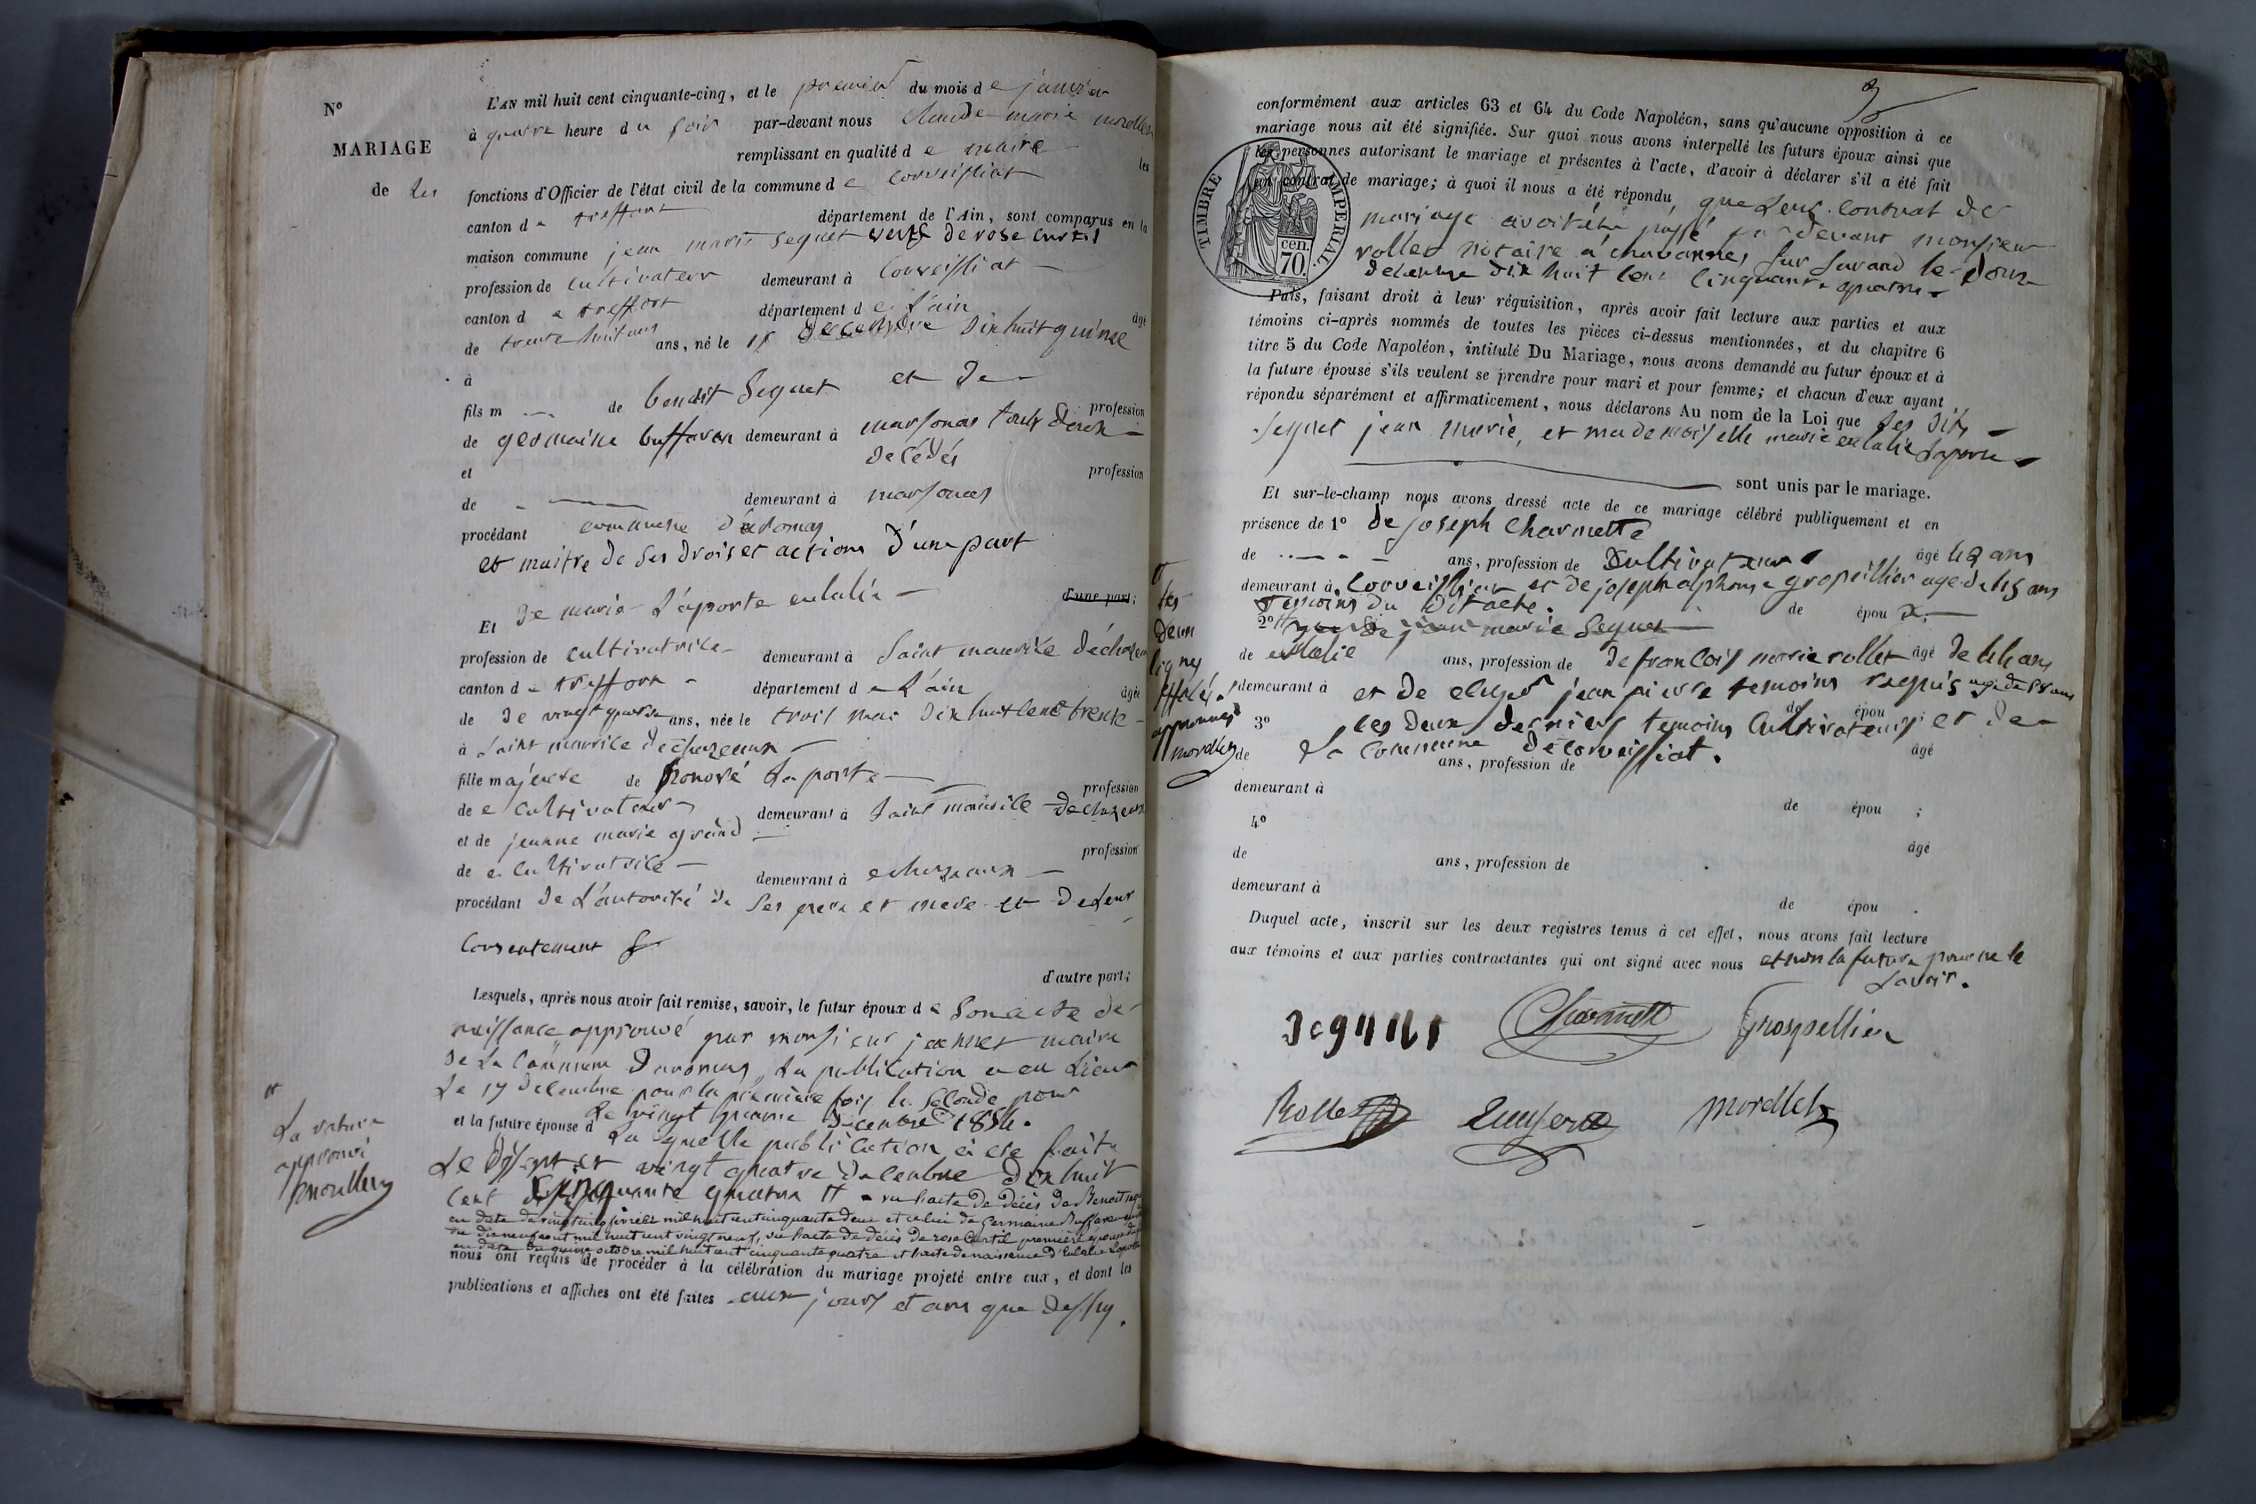 N°
MARIAGE
de les
L'AN mil huit cent cinquante-cinq, et le premier du mois de janvier
à quatre heure du soir par-devant nous Claude marie morellet
remplissant en qualité de maire les
fonctions d'Officier de l'état civil de la commune de Corveissiat
canton de treffort département de l'Ain, sont comparus en la
maison commune jean marie seguet veuf de rose curtil
profession de cultivateur demeurant à Corveissiat
canton de treffort département de l'ain âgé
de trente huit ans ans, né le 15 decembre dix huit quinse
à
fils m de benoit Seguet et de
profession
de germaine buffavan demeurant à marsonas tous deux
et décédés profession
de demeurant à marsonas
procédant commune d'aromas
et maitre de ses drois et actions d'une part
d'une part;
Et de marie Laporte eulalie
profession de cultivatrice demeurant à Saint maurice déchazeaux
canton de treffort département de L'ain âgée
de de vingt quatre ans, née le trois mai dix huit cent trente
à Saint maurice dechazeaux
fille majeure de honoré Laporte profession
de cultivateur demeurant à Saint maurice dechazeaux
et de jeanne marie grand profession
de cultivatrice demeurant à echazeaux
procédant de L'autorité de ses pere et mere et de leur
Consentement
d'autre part;
Lesquels, après nous avoir fait remise, savoir, le futur époux de son acte de
naissance approuvé par monsieur jeannet maire
de La Commune daromas, La publication a eu Lieu
Le 17 decembre pour la première fois la seconde pour
Le vingt quatre decembre 1854.
et la future épouse d La quelle publication a ete faite
Le disept et vingt quatre decembre dix huit
Cent Cinquante quatre vu l'acte de décès de Benoit
en date de vingt cinq mil huit cent cinquante deux et celui de Germaine Buffavan
du dix neuf août mil huit cent vingt neuf, vu l'acte de décès de rose Curtil première épouse
en date du quinze octobre mil huit cent cinquante quatre et l'acte de naissance d'Eulalie Laporte
nous ont requis de procéder à la célébration du mariage projeté entre eux, et dont les
publications et affiches ont été faites aux jours et ans que dessus.
La rature
approuvé
Morellet
conformément aux articles 63 et 64 du Code Napoléon, sans qu'aucune opposition à ce
mariage nous ait été signifiée. Sur quoi nous avons interpellé les futurs époux ainsi que
les personnes autorisant le mariage et présentes à l'acte, d'avoir à déclarer s'il a été fait
un contrat de mariage; à quoi il nous a été répondu que Leur Contrat de
mariage avoit été passé par devant monsieur
rollet notaire à chavannes sur Surand le douze
decembre dix huit cent cinquante quatre.
TIMBRE IMPÉRIAL
cen.
70.
Puis, faisant droit à leur réquisition, après avoir fait lecture aux parties et aux
témoins ci-après nommés de toutes les pièces ci-dessus mentionnées, et du chapitre 6
titre 5 du Code Napoléon, intitulé Du Mariage, nous avons demandé au futur époux et à
la future épouse s'ils veulent se prendre pour mari et pour femme; et chacun d'eux ayant
répondu séparément et affirmativement, nous déclarons Au nom de la Loi que Les Dits
Seguet jean marie, et mademoiselle marie eulalie Laporte
sont unis par le mariage.
Et sur-le-champ nous avons dressé acte de ce mariage célébré publiquement et en
présence de 1° de joseph Charnette
de ans, profession de Cultivateur âgé 42 ans
demeurant à Corveissiat et de joseph alphonse grospellier age de 45 ans
temoins du dit acte. de épou x
2° de jean marie Seguet
de eulalie ans, profession de de francois marie rollet âgé de 44 ans
demeurant à et de eluyer jean pierre temoins requis age de 58 ans
de épou
3° les deux derniers temoins Cultivateurs et de
de La Commune de corveissiat. âgé
ans, profession de
demeurant à
de épou ;
4°
de ans, profession de âgé
demeurant à
de épou .
les
deux
lignes
effacés
approuvé
Morellet
Duquel acte, inscrit sur les deux registres tenus à cet effet, nous avons fait lecture
aux témoins et aux parties contractantes qui ont signé avec nous et non la future pour ne le
Savoir.
Seguet Charnette Grospellier
Rollet Morellet